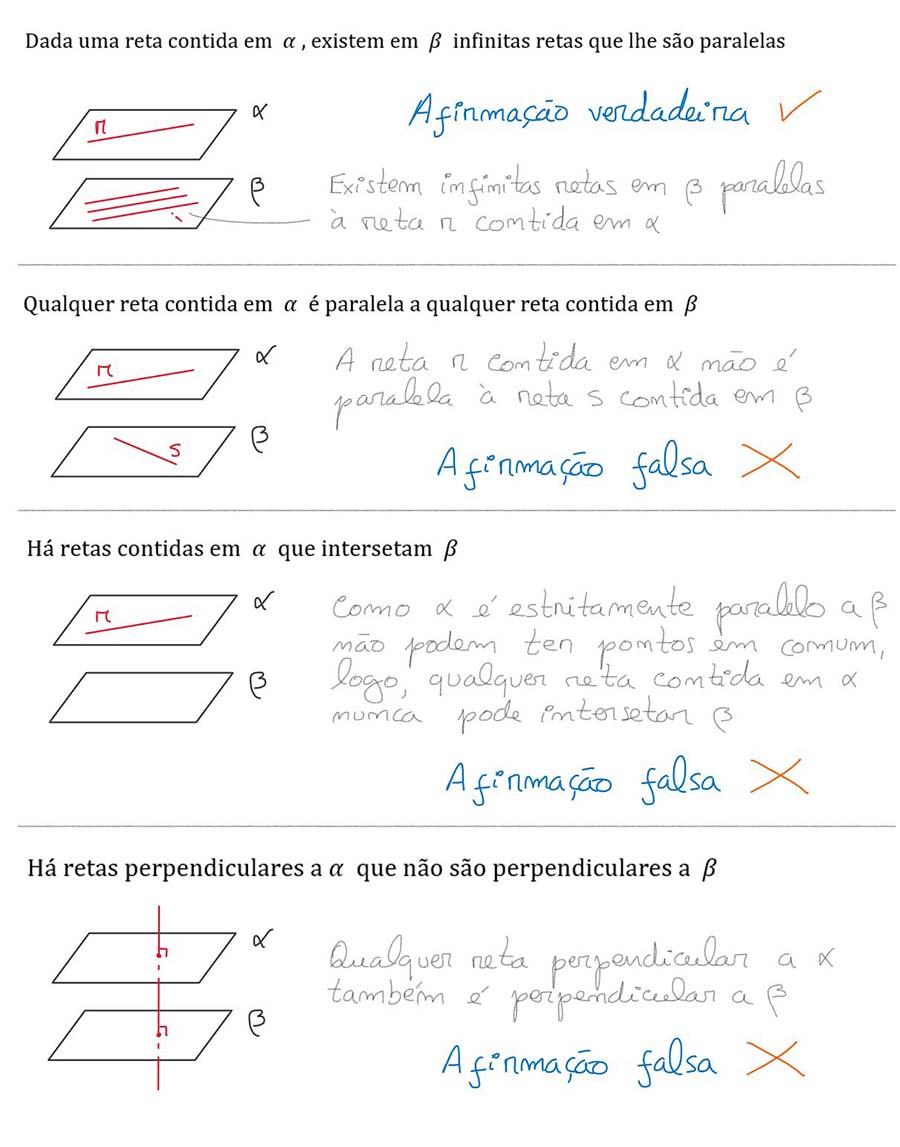 Dada uma reta contida em α , existem em β infinitas retas que lhe são paralelas
α
Afirmação verdadeira
r
β
Existem infinitas retas em β paralelas
à reta r contida em α
Qualquer reta contida em α é paralela a qualquer reta contida em β
α
r
A reta r contida em α não é
paralela à reta s contida em β
β
s
Afirmação falsa
Há retas contidas em α que intersetam β
α
r
Como α é estritamente paralelo a β
não podem ter pontos em comum,
logo, qualquer reta contida em α
nunca pode intersetar β
β
Afirmação falsa
Há retas perpendiculares a α que não são perpendiculares a β
α
Qualquer reta perpendicular a α
também é perpendicular a β
β
Afirmação falsa